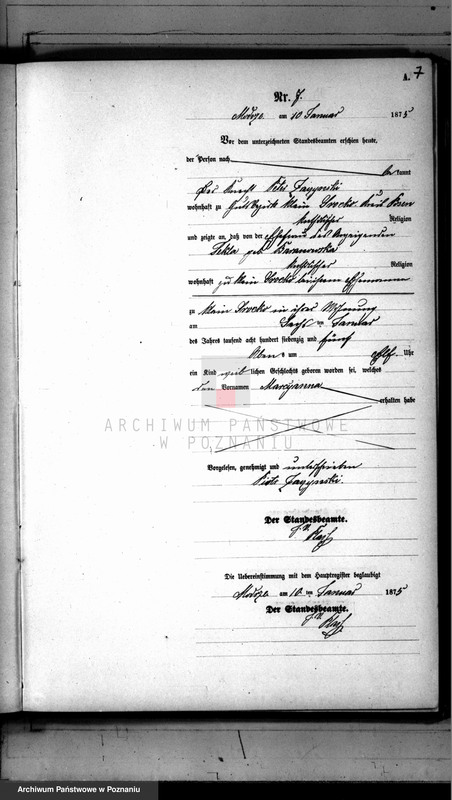 A. 7
Nr. 7.
am 10 Januar 1875
Vor dem unterzeichneten Standesbeamten erschien heute,
der Person nach
be kannt
der Knecht
wohnhaft zu Gutsbezirk Klein Kreis
katholischer Religion
und zeigte an, daß von der Ehefrau des Anzeigenden
Tekla geb Baranowska
katholischer Religion
wohnhaft zu Klein bei ihrem Ehemanne
zu Klein in ihrer Wohnung
am Sechs ten Januar
des Jahres tausend acht hundert siebenzig und fünf
Abends um elf Uhr
ein Kind weib lichen Geschlechts geboren worden sei, welches
den Vornamen Marcyanna
erhalten habe
ARCHIWUM PAŃSTWOWE
W POZNANIU
Vorgelesen, genehmigt und unterschrieben
Piotr
Der Standesbeamte.
Die Uebereinstimmung mit dem Hauptregister beglaubigt
am 10 ten Januar 1875
Der Standesbeamte.
Archiwum Państwowe w Poznaniu